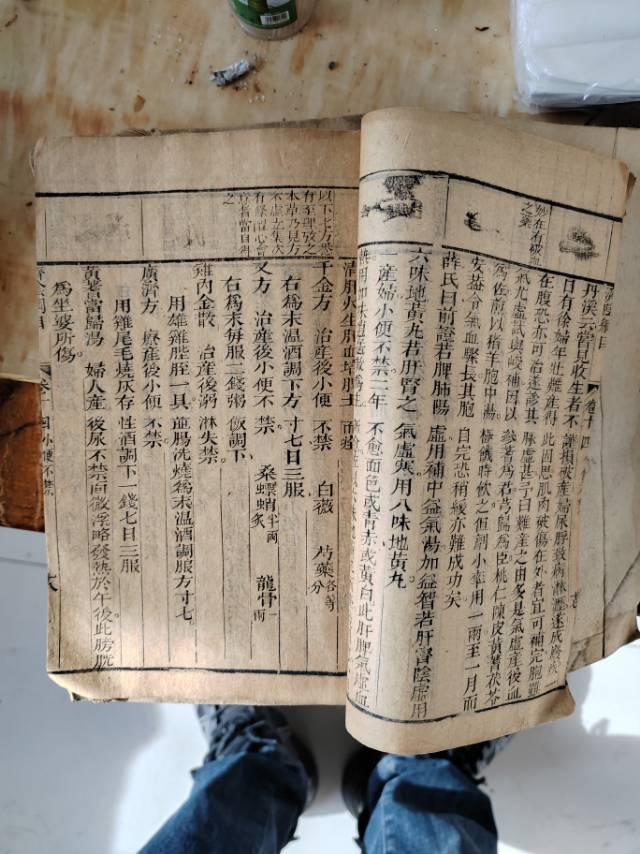 丹溪云嘗見收生者不謹損破產婦尿脬致病淋瀝遂成廢疾
日有徐婦年壯難產得此因思肌肉破傷在外者宜可補完胞雖
在腹恐亦可治遂診其脉虛甚曰難產之由多是氣虛產後血
氣尤虛試與峻補因以參芪為君芎歸為臣桃仁陳皮黃芪茯苓
為佐煎以猪羊胞中湯極饑時飲之但劑小率用一兩至一月而
安蓋令氣血驟長其胞自完恐稍緩亦難成功矣
妙在有破血之藥
薛氏曰前證若脾肺陽虛用補中益氣湯加益智若肝腎陰虛用
六味地黃丸若肝腎之氣虛寒用八味地黃丸
一產婦小便不禁二年不愈面色或青赤或黃白此肝脾氣虛血
清肝火生肝血培脾土而瘥
以下七方
千金方 治產後小便不禁 白薇 芍藥各等分
右為末溫酒調下方寸七日三服
又方 治產後小便不禁 桑螵蛸炙半兩 龍骨一兩
右為末每服二錢粥飲調下
雞內金散 治產後溺淋失禁
用雄雞胵一具 並腸洗燒為末溫酒調服方寸七
廣濟方 療產後小便不禁
用雞尾毛燒灰存性酒調下一錢七日三服
黃芪當歸湯 婦人產後尿不禁面微浮略發熱於午後此膀胱
為坐婆所傷
卷十四 小便不禁